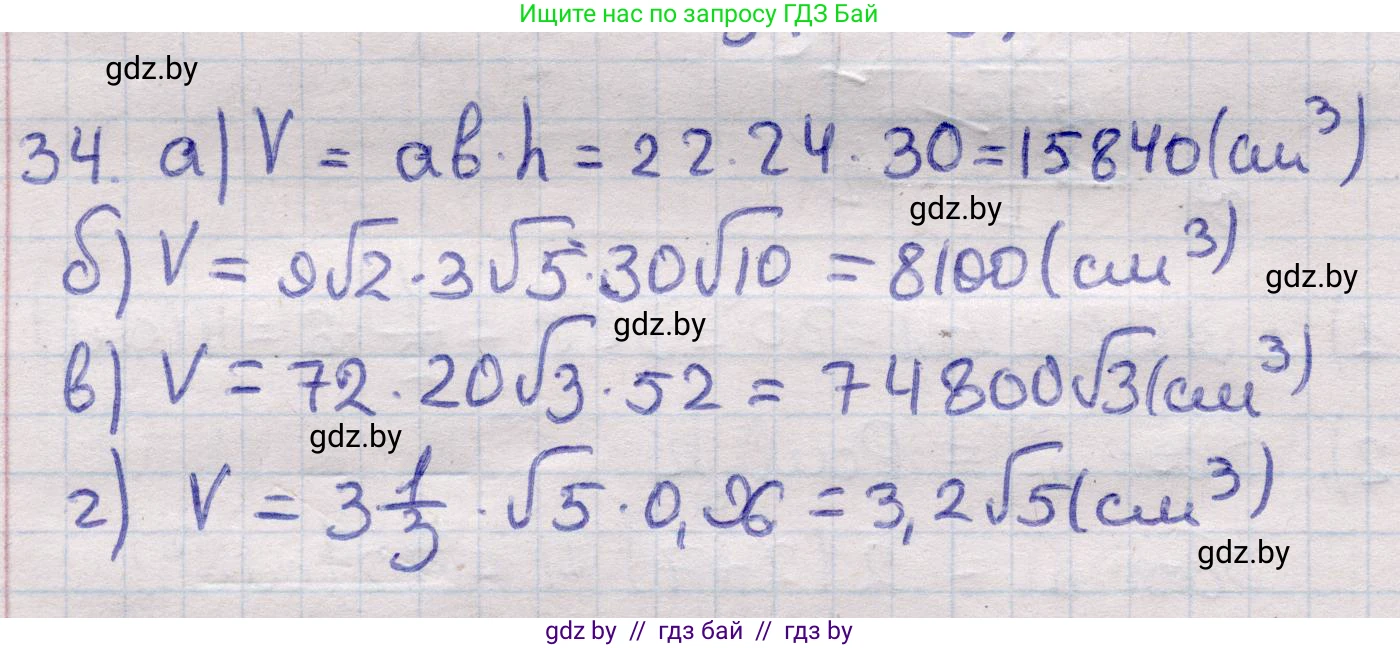 Ищите нас по запросу ГДЗ Бай
gdz.by
34. а) V = ab·h = 22·24·30=15840(см³)
gdz.by
б) V = 9√2·3√5·30√10 = 8100(см³)
gdz.by
gdz.by
в) V = 72·20√3·52 = 74800√3(см³)
gdz.by
г) V = 3 1/3 · √5 · 0,96 = 3,2√5(см³)
gdz.by
gdz by // гдз бай // гдз by